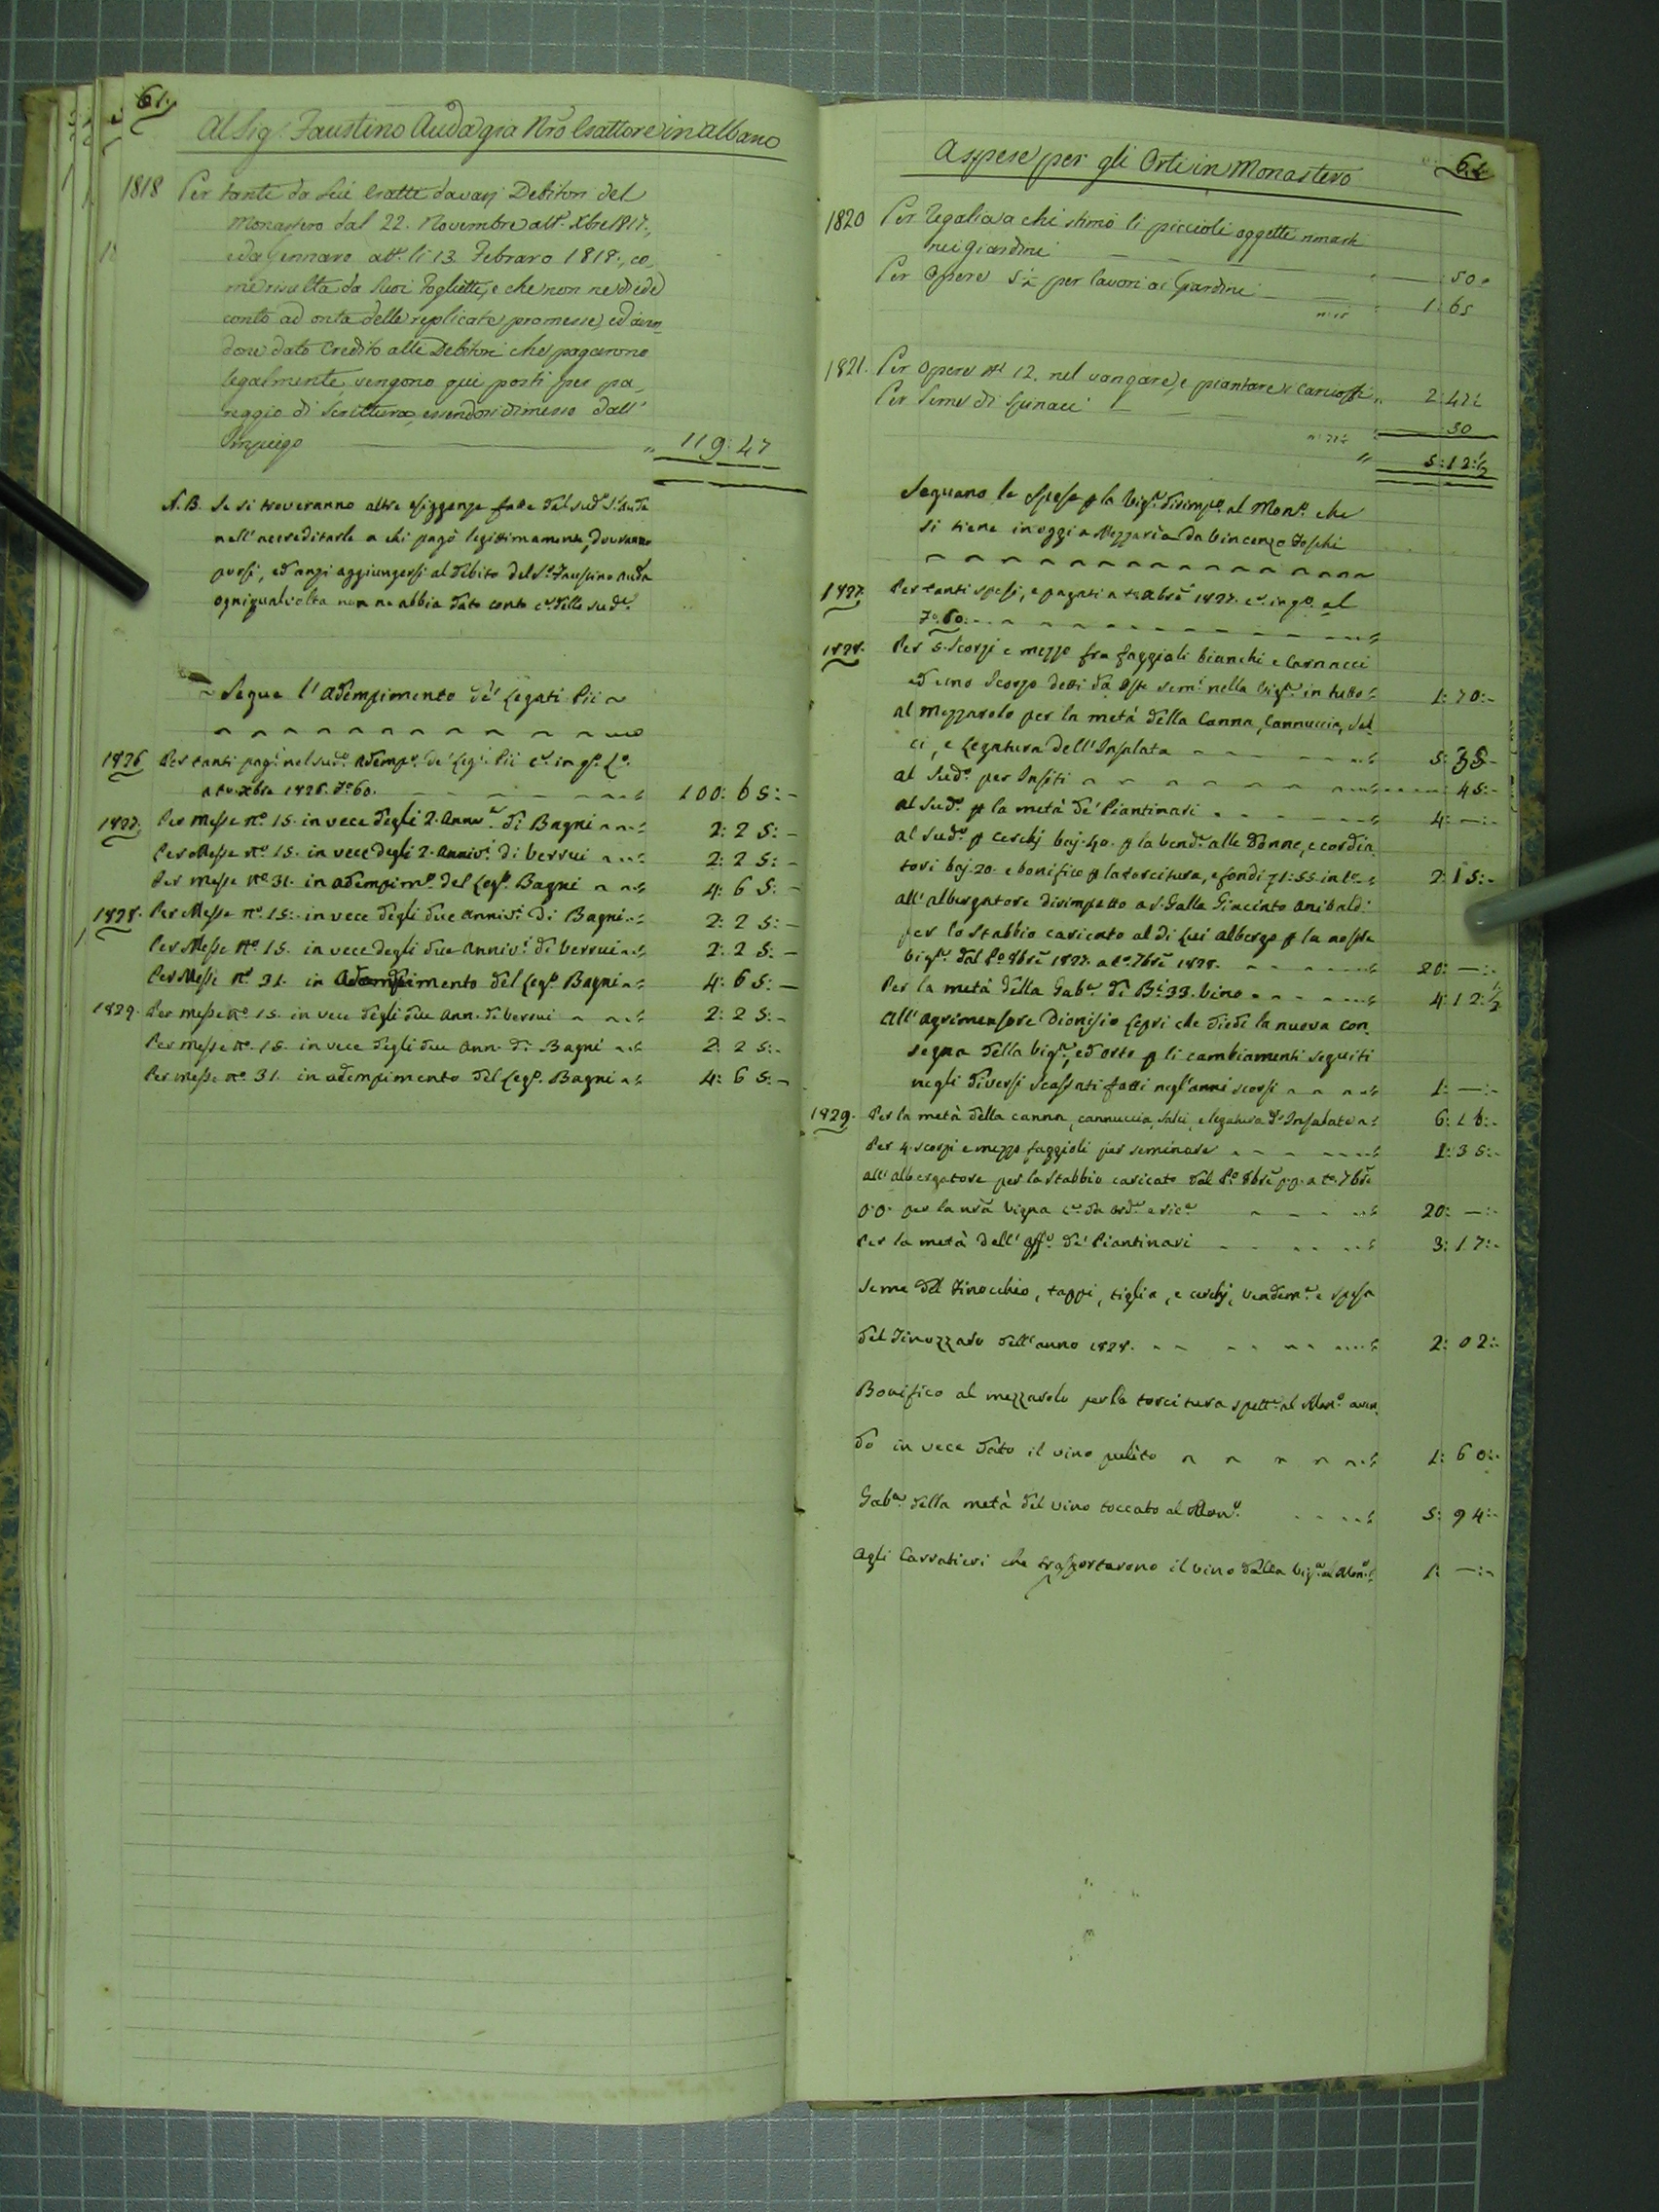 61.
Al Sig.r Faustino Auda già Nrō Esattore in Albano
1818 Per tante da Lui Esatte da varj Debitori del
Monastero dal 22. Novembre all'. Xbre 1817.,
e da Gennaro all'. li 13. Febraro 1818., co-
me risulta da Suoi Foglietti, e che non ne diede
conto ad onta delle replicate promesse, ed aven-
done dato Credito alli Debitori che pagarono
legalmente, vengono qui posti per pa-
reggio di Scrittura, essendosi dimesso dall'
Impiego " 119:47
N.B. Se si troveranno altre esiggenze fatte dal sud.o S.r Auda
nell'accreditarle a chi pagò legittimamente, dovranno
porsi, ed anzi aggiungersi al debito del S.r Faustino Auda
ogniqualvolta non ne abbia dato conto delle sud.e
Segue l'adempimento de' Legati Pii
1826. Per tanti pag.i nel sud.o adomp.o de' Leg.i Pii c.e in q.o L.o
a tt.o Xbre 1826. F.o 60. 100:65:-
1827. Per Messe n.o 15. in vece degli 2. Anniv.i di Bagni 2:25:-
Per Messe n.o 15. in vece degli 2. Anniv.i di Verrui 2:25:-
Per Messe n.o 31. in adempim.o del Leg.o Bagni 4:65:-
1828. Per Messe n.o 15. in vece degli due Anniv.i di Bagni 2:25:-
Per Messe n.o 15. in vece degli due Anniv.i di Verrui 2:25:-
Per Messe n.o 31. in Adempimento del Leg.o Bagni 4:65:-
1829. Per Messe n.o 15. in vece degli due Ann. di Verrui 2:25:-
Per Messe n.o 15. in vece degli due Ann. di Bagni 2:25:-
Per Messe n.o 31. in adempimento del Leg.o Bagni 4:65:-
A spese per gli Orti in Monastero
62.
1820 Per Regalia a chi stimò li piccioli oggetti rimasti
nei Giardini :50.
Per Opere 5½ per lavori ai Giardini 1:65
1821. Per Opere n.o 12. nel vangare, e piantare i Carciofi 2:47½
Per Seme di Spinaci :30
" 5:12:½
Seguono le Spese p la Vig.a dirimp.o al Mon.o che
si tiene in oggi a Mezzaria da Vincenzo Foschi
1827. Per tanti spesi, e pagati a tt.o Xbre 1827. c.e in q.o al
F.o 60.
1828. Per 5. Scorzi e mezzo fra faggioli bianchi e Carnacci
ed uno Scorzo detti da Oste sem.i nella Vig.a in tutto 1:70:-
al Mezzarolo per la metà della Canna, Cannuccia, Sal-
ci, e Legatura dell'Insalata 5:
al Sud.o per Insiti 45:-
al Sud.o p la metà de' Piantinari 4:—:-
al Sud.o p Cerchj baj. 40. p la vend.a alle Donne, e cordia-
tori baj. 20. e bonifico p la torcitura, e fondi 2:15:-
all'albergatore dirimpetto a S. Galla Giacinto Anibaldi
per lo Stabbio caricato al di Lui Albergo p la nostra
Vig.a dal P.o 8bre 1827. a t.o 7bre 1828. 20:—:-
Per la metà della Gab.a di B.i 33. Vino 4:12:½
All'agrimensore Dionisio Lepri che diede la nuova con-
segna della Vig.a, ed orto p li cambiamenti seguiti
negli diversi scassati fatti negl'anni scorsi 1:—:-
1829. Per la metà della canna, cannuccia, salci, e legatura d'Insalata 6:16:-
Per 4. scorzi e mezzo faggioli per seminare 1:35:-
all'albergatore per lo Stabbio caricato dal P.o 8bre p.p. a t.o 7bre
per la nrā Vigna c.e da ord.e e ric.e 20:—:-
Per la metà dell'aff.o de' Piantinari 3:17:-
Seme del Finocchio, tappi, tiglia, e cerchj, Vendem.a e spesa
del Tinozzaro dell'anno 1828. 2:02:-
Bonifico al mezzarolo per la torcitura spett.e al Mon.o aven-
do in vece dato il vino pulito 1:60:-
Gab.a della metà del vino toccato al Mon.o 5:94:-
Agli Carrattieri che trasportarono il vino dalla Vig.a al Mon.o 1:—:-